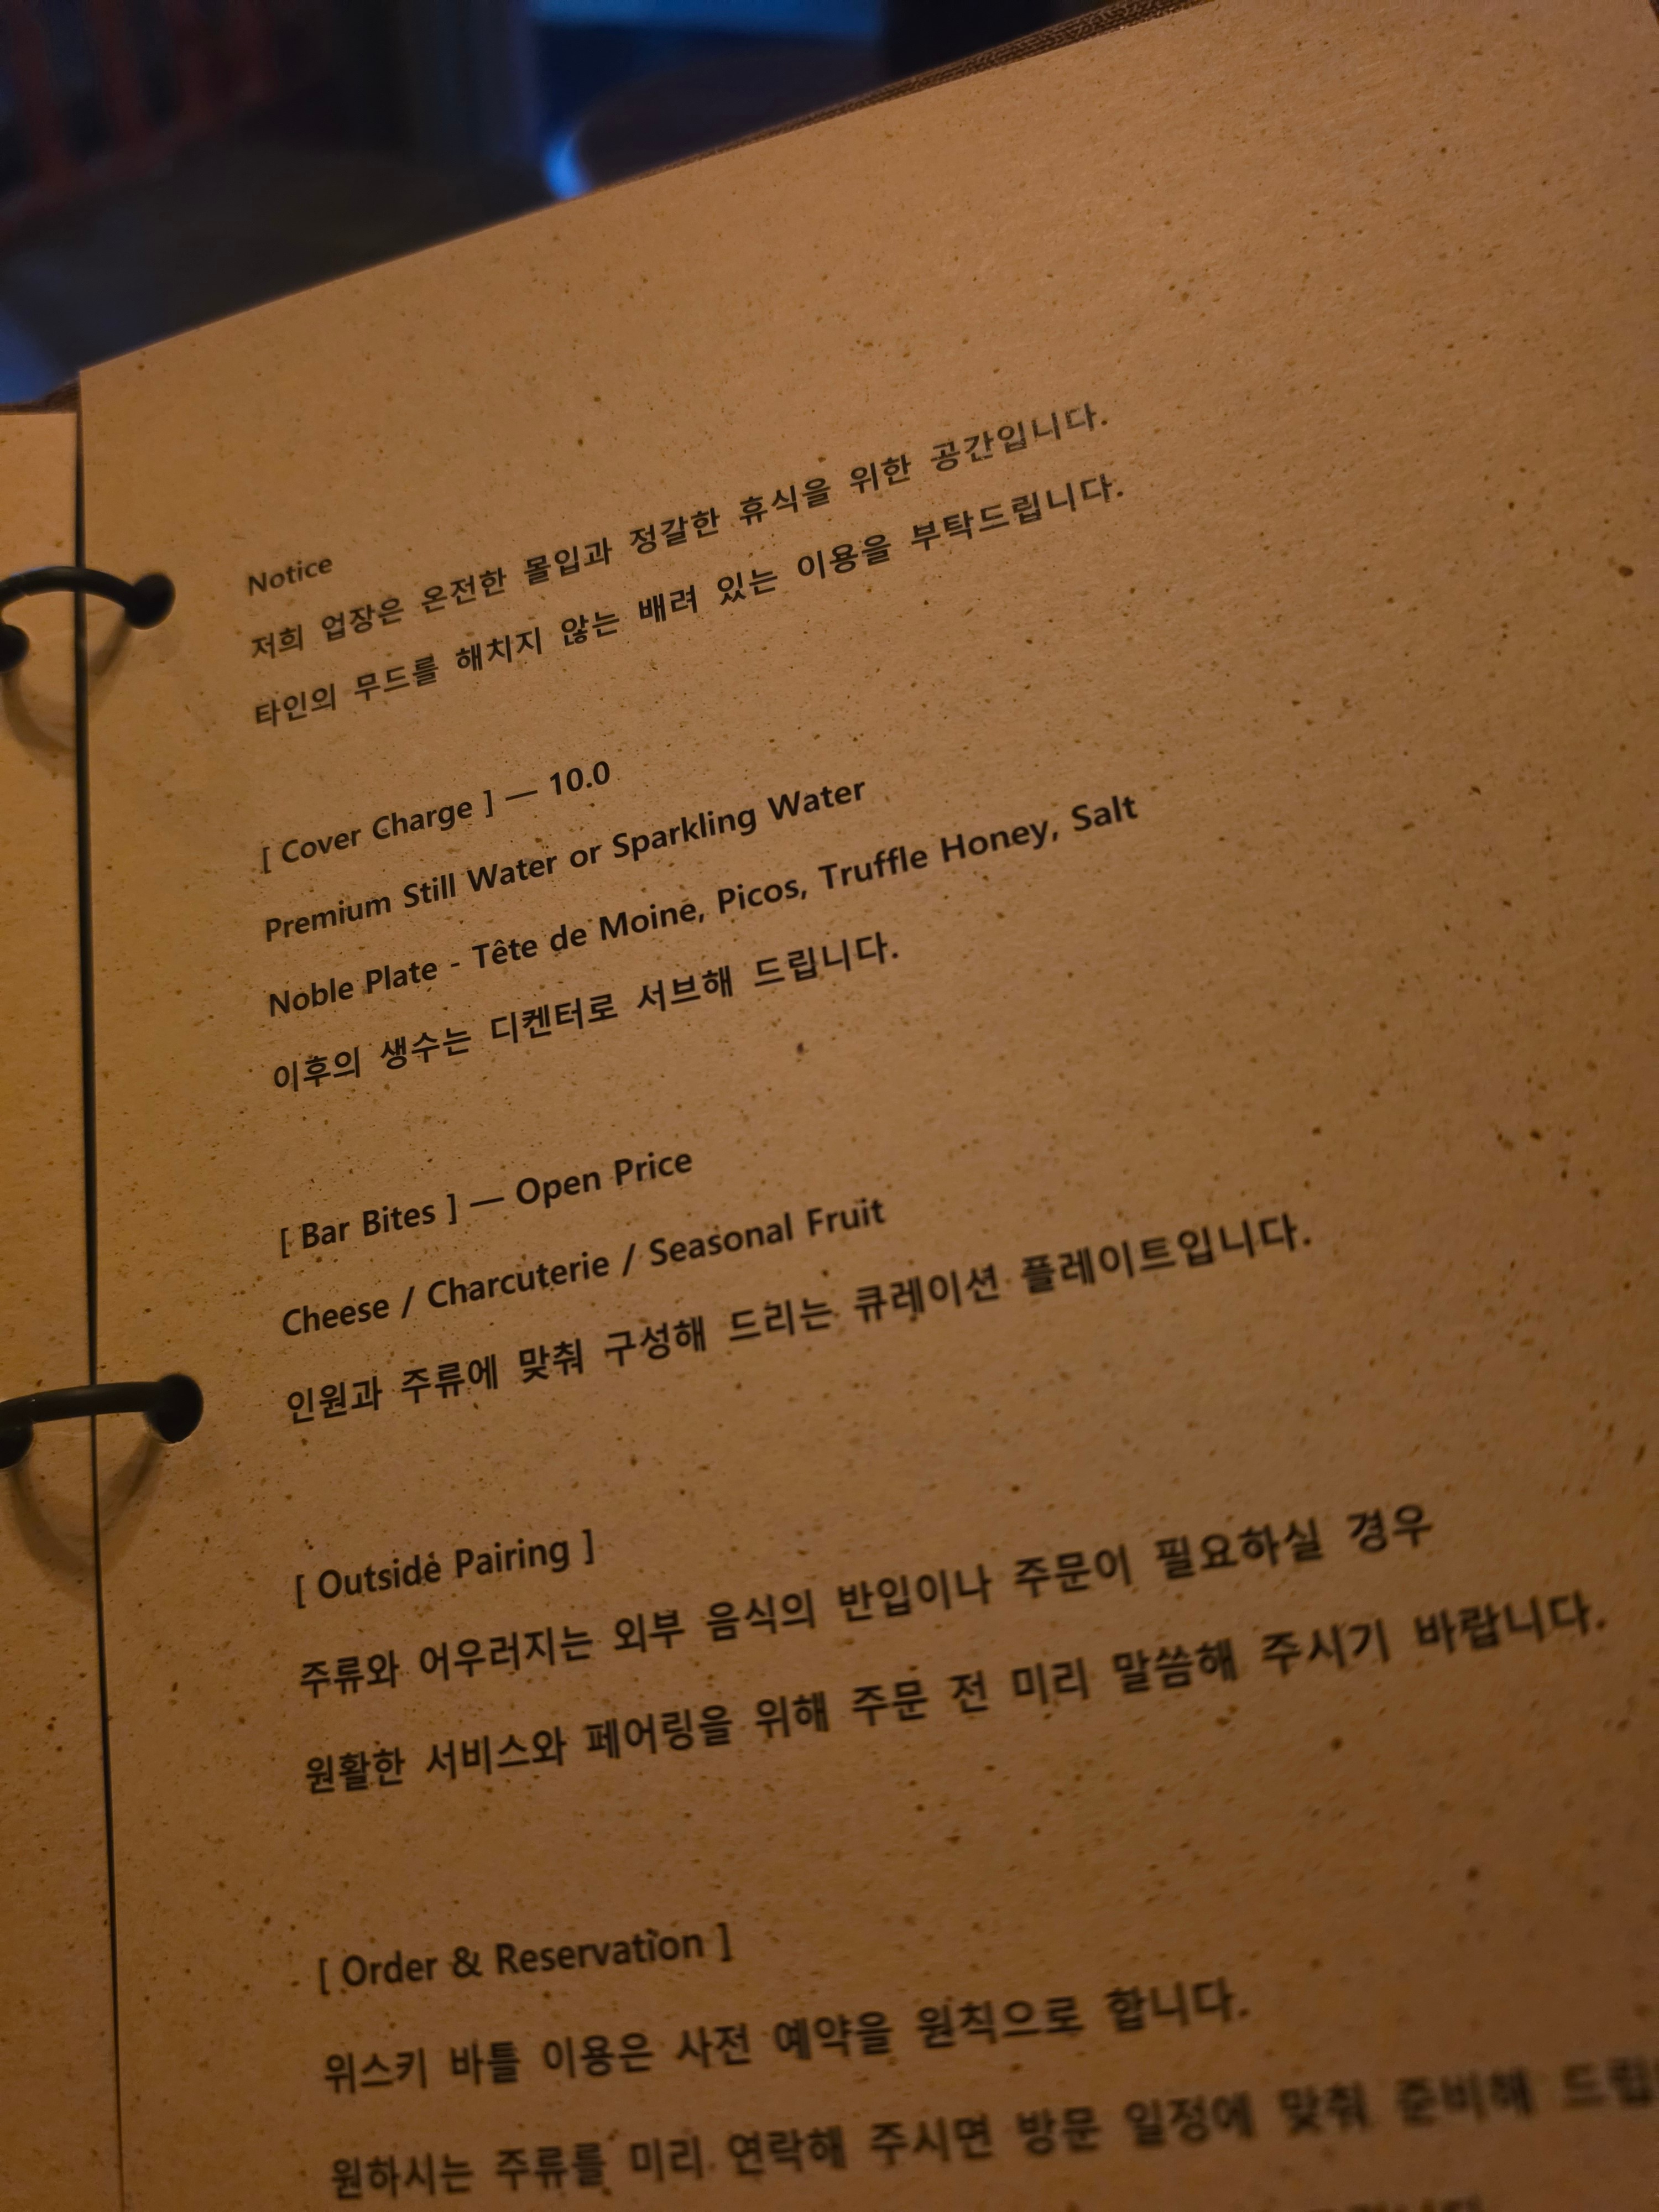 Notice
저희 업장은 온전한 몰입과 정갈한 휴식을 위한 공간입니다.
타인의 무드를 해치지 않는 배려 있는 이용을 부탁드립니다.
[ Cover Charge ] — 10.0
Premium Still Water or Sparkling Water
Noble Plate - Tête de Moine, Picos, Truffle Honey, Salt
이후의 생수는 디켄터로 서브해 드립니다.
[ Bar Bites ] — Open Price
Cheese / Charcuterie / Seasonal Fruit
인원과 주류에 맞춰 구성해 드리는 큐레이션 플레이트입니다.
[ Outside Pairing ]
주류와 어우러지는 외부 음식의 반입이나 주문이 필요하실 경우
원활한 서비스와 페어링을 위해 주문 전 미리 말씀해 주시기 바랍니다.
[ Order & Reservation ]
위스키 바틀 이용은 사전 예약을 원칙으로 합니다.
원하시는 주류를 미리 연락해 주시면 방문 일정에 맞춰 준비해